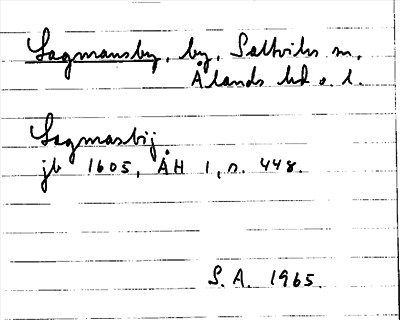 Lagmansby, by, Saltviks sn,
Ålands hd o. l.
Lagmasbÿ
jb 1605, ÅH 1, s. 448.
S. A. 1965.